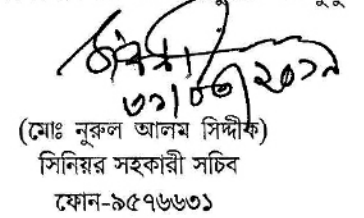 ৩১/০৩/২০১৯
(মোঃ নুরুল আলম সিদ্দীক)
সিনিয়র সহকারী সচিব
ফোন-৯৫৭৬৬৩১